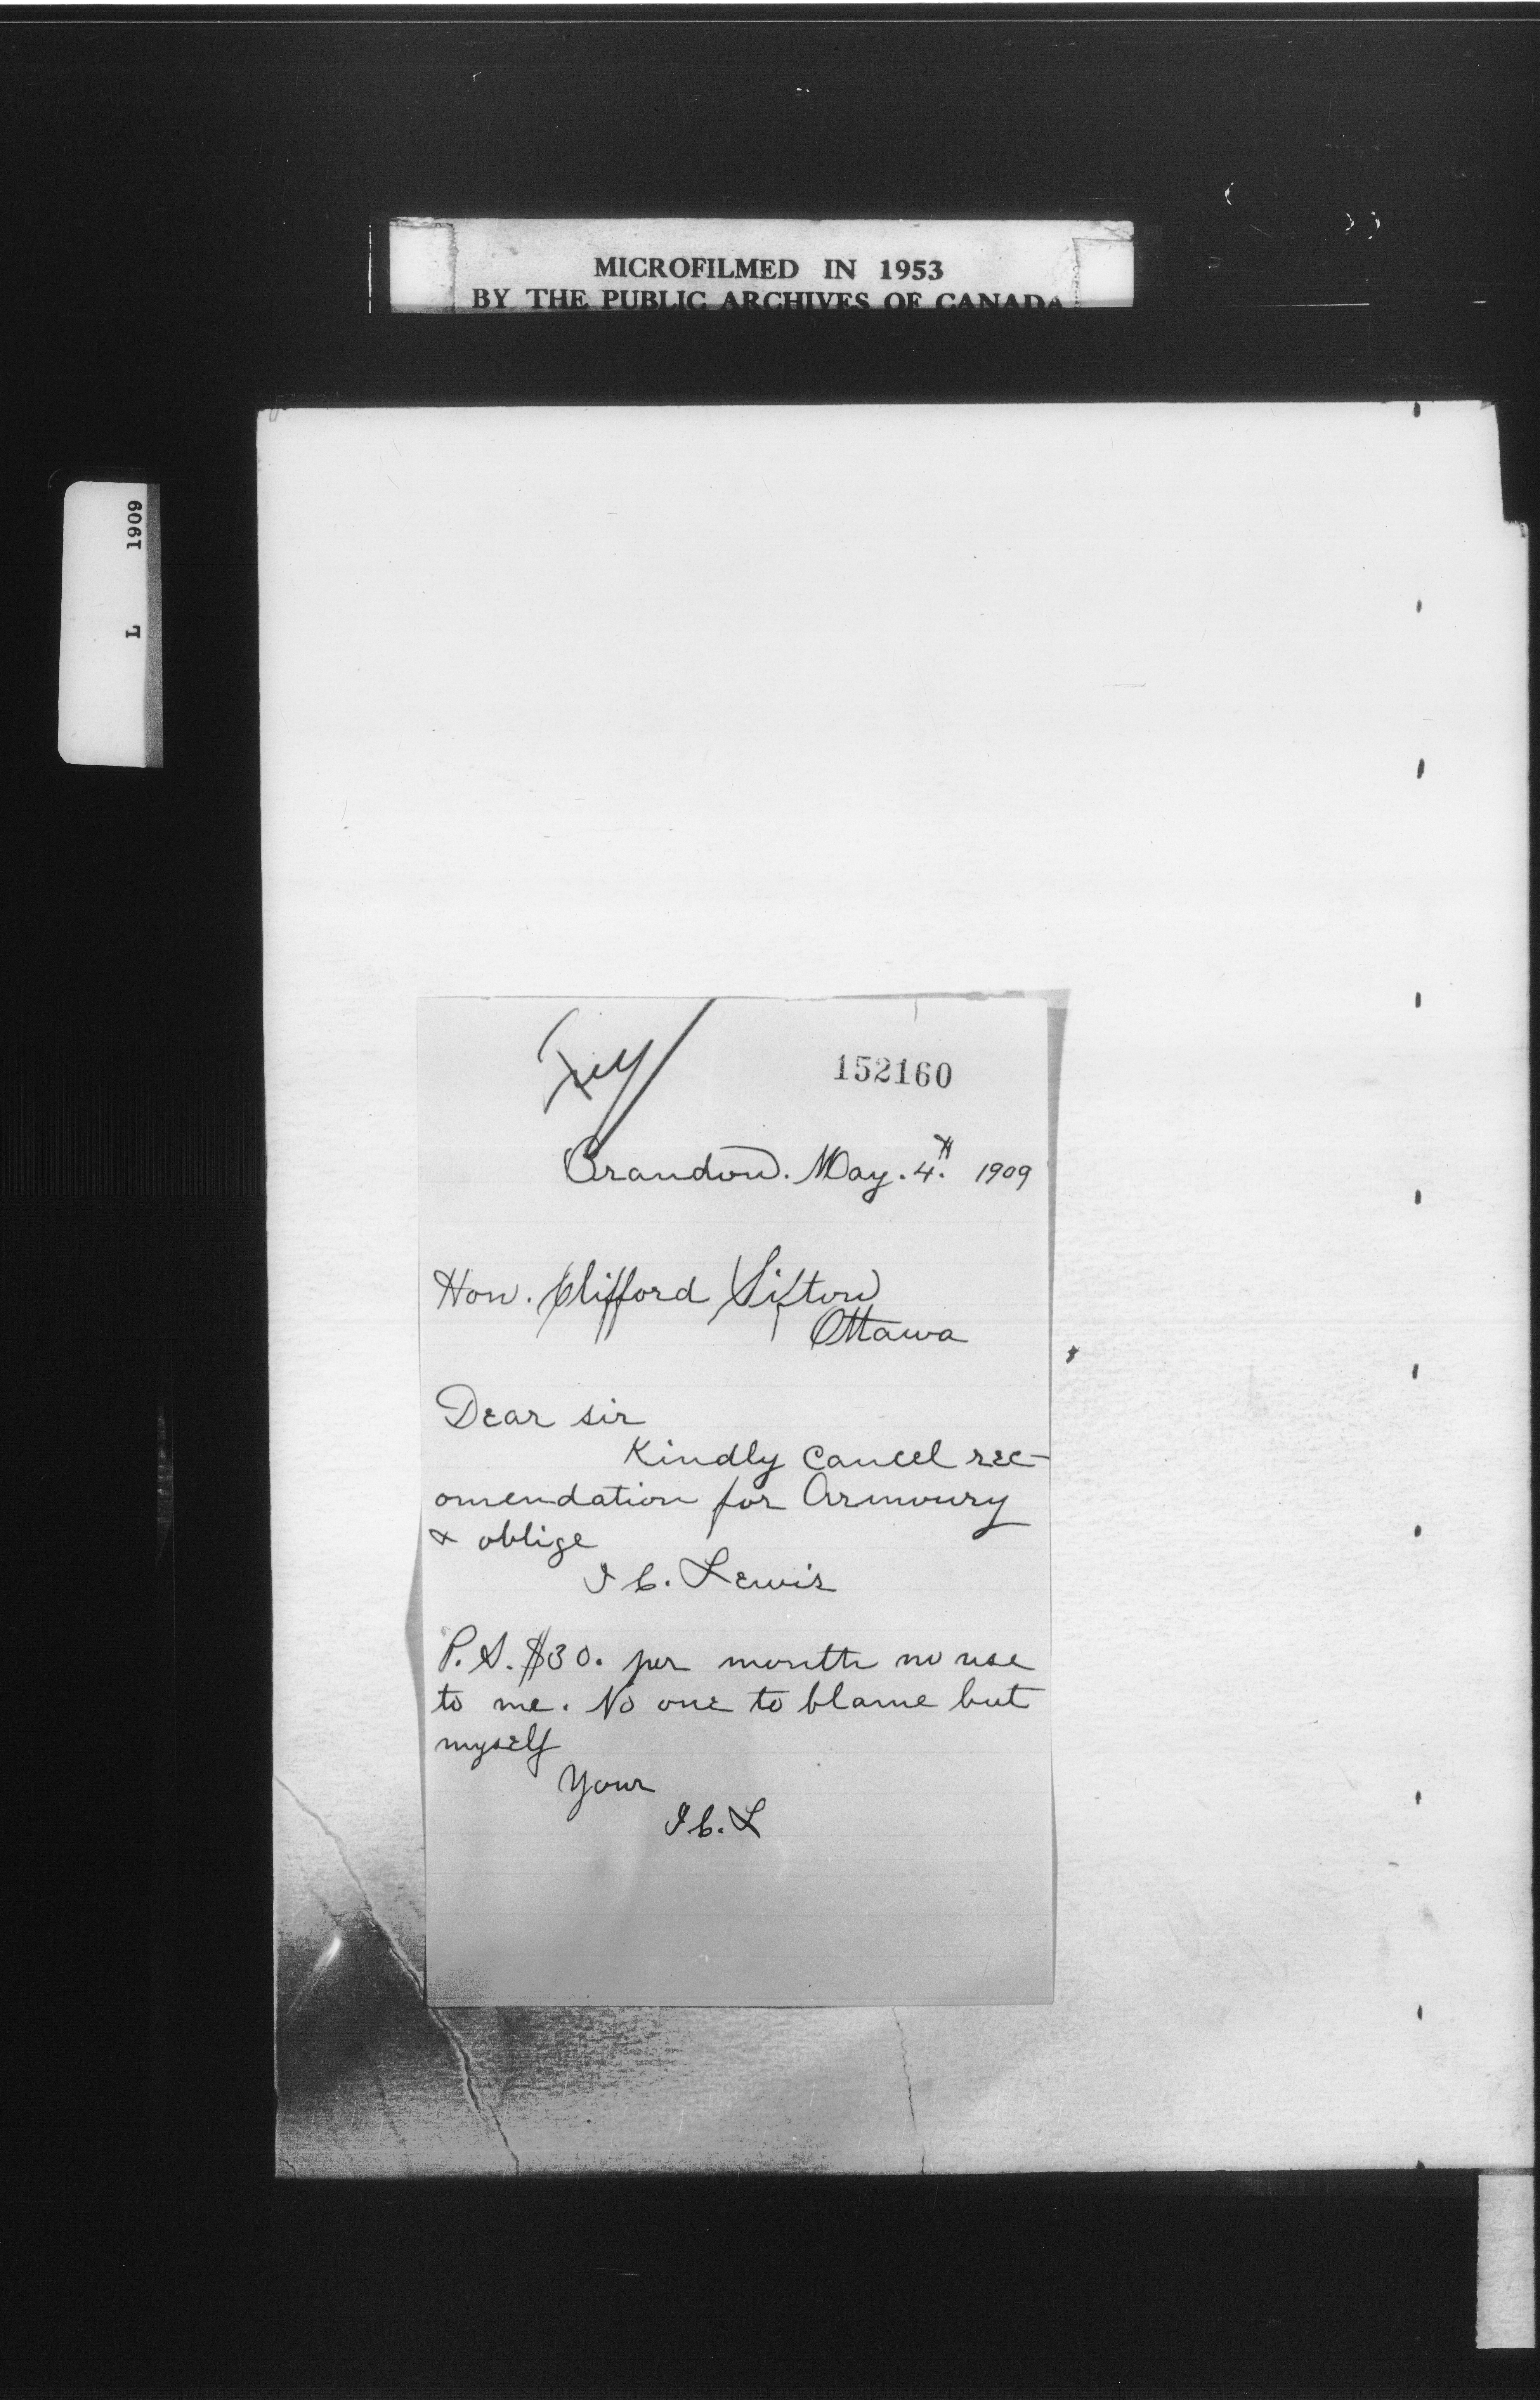 MICROFILMED IN 1953
BY THE PUBLIC ARCHIVES OF CANADA
L 1909
152160
Brandon. May. 4th. 1909
Hon. Clifford Sifton
Ottawa
Dear sir
Kindly cancel rec-
omendation for Armoury
& oblige
I C. Lewis
P.S. $30. per month no use
to me. No one to blame but
myself
Your
I C. L